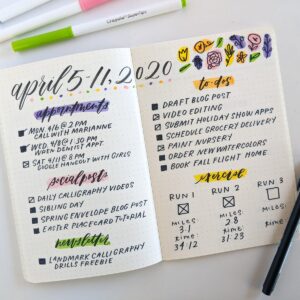 Crayola SuperTips
april 5-11, 2020
appointments
MON 4/6 @ 2 PM
CALL WITH MARIANNE
WED 4/8 @ 1:30 PM
WREN DENTIST APPT
SAT 4/11 @ 8 PM
GOOGLE HANGOUT WITH GIRLS
social posts
DAILY CALLIGRAPHY VIDEOS
SIBLING DAY
SPRING ENVELOPE BLOG POST
EASTER PLACECARD TUTORIAL
newsletter
LANDMARK CALLIGRAPHY
DRILLS FREEBIE
to-dos
DRAFT BLOG POST
VIDEO EDITING
SUBMIT HOLIDAY SHOW APPS
SCHEDULE GROCERY DELIVERY
PAINT NURSERY
ORDER NEW WATERCOLORS
BOOK FLIGHT HOME
exercise
RUN 1 RUN 2 RUN 3
MILES: MILES: MILES:
3.1 2.8
TIME: TIME: TIME:
34:12 31:23